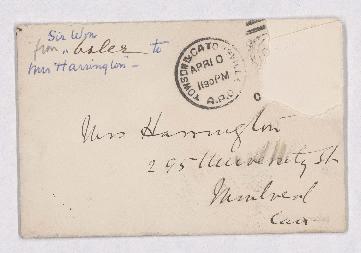 Sir Wm
from "Osler" to
Mrs Harrington -
TOWSON & CATONSVILLE
APR 10
1130PM
R.P.O.
C
Mrs Harrington
295 University St
Montreal
Can